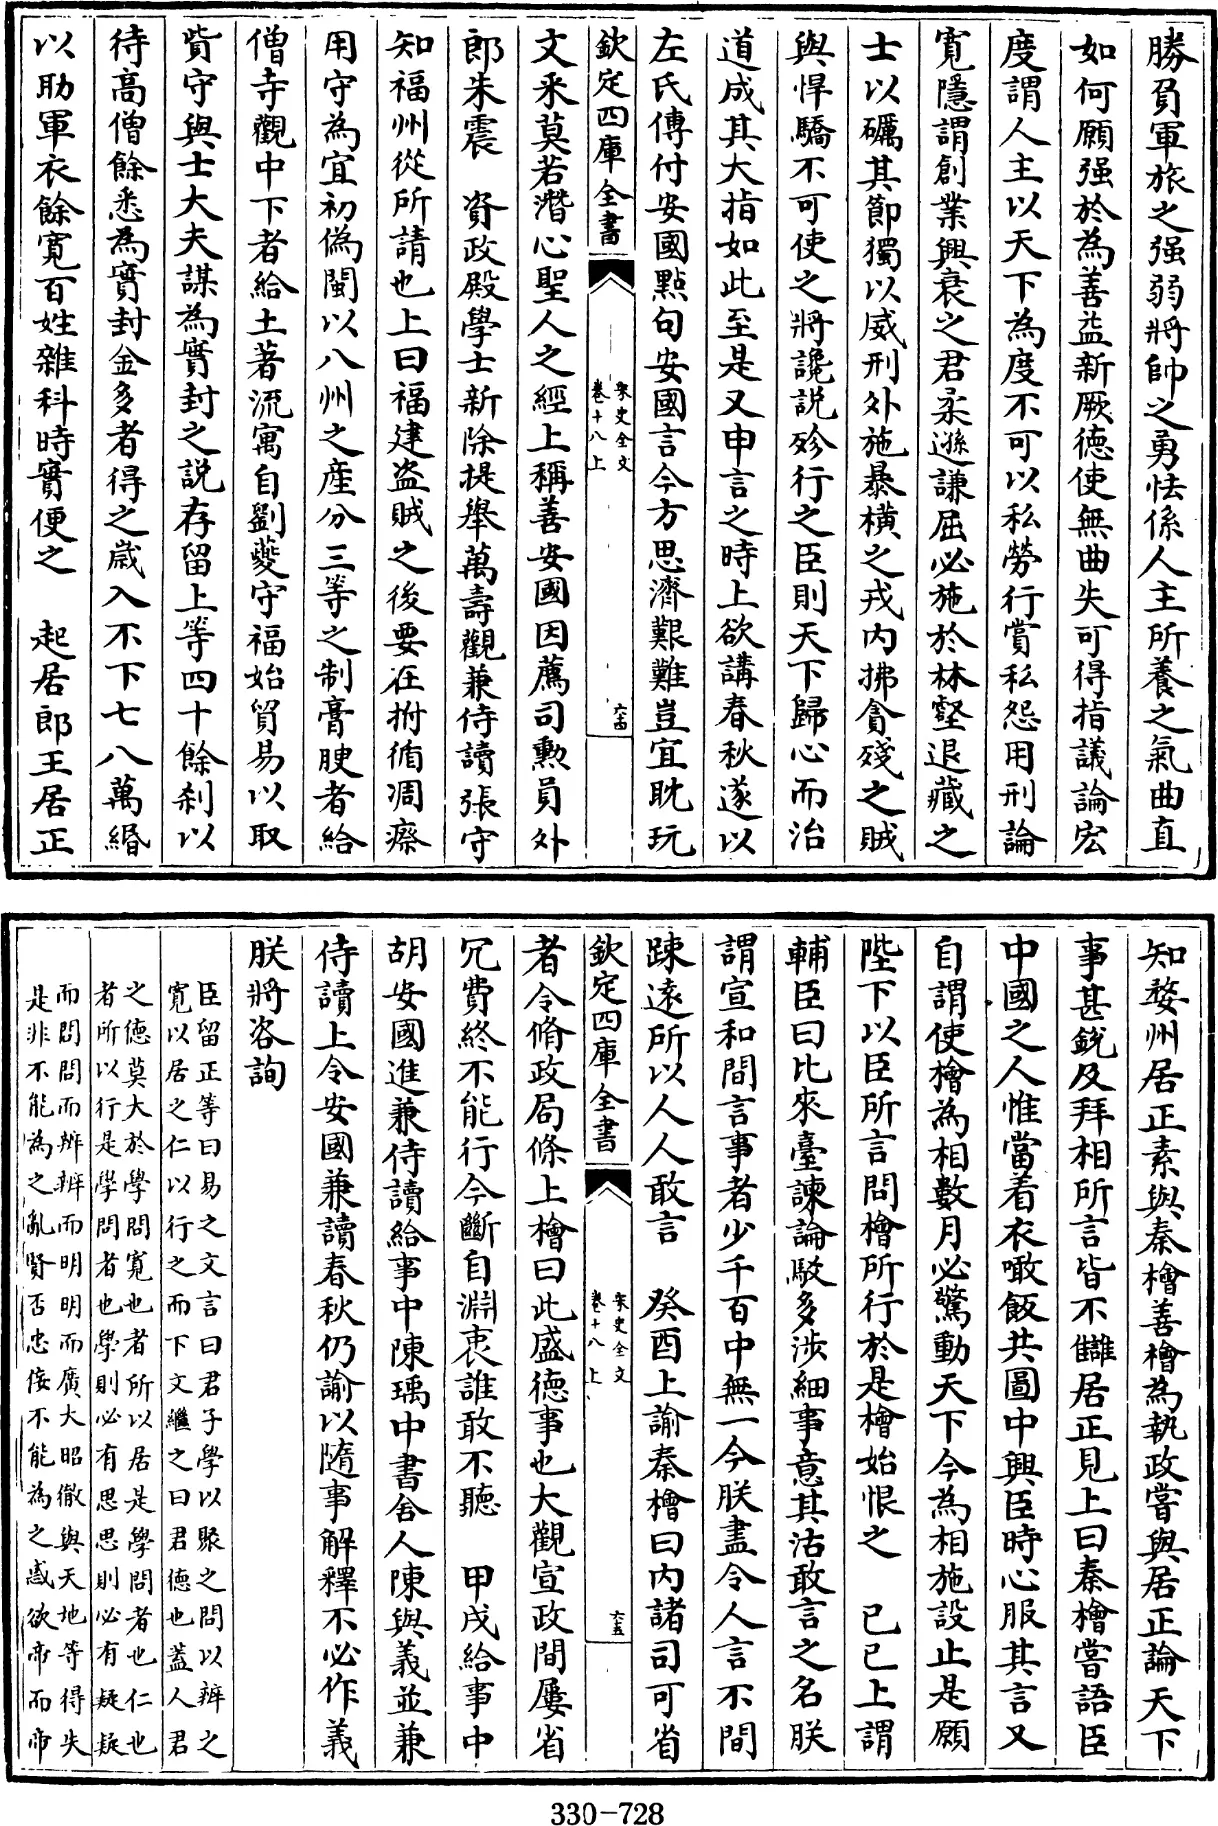 勝負軍旅之强弱將帥之勇怯係人主所養之氣曲直
如何願强於為善益新厥德使無曲失可得指議論宏
度謂人主以天下為度不可以私勞行賞私怨用刑論
寛隱謂創業興衰之君柔遜謙屈必施於林壑退藏之
士以礪其節獨以威刑外施暴横之戎内拂貪殘之賊
與悍驕不可使之將讒説殄行之臣則天下歸心而治
道成其大指如此至是又申言之時上欲講春秋遂以
左氏傳付安國點句安國言今方思濟艱難豈宜耽玩
欽定四庫全書
宋史全文
卷十八上
六十四
文采莫若潛心聖人之經上稱善安國因薦司勲員外
郎朱震 資政殿學士新除提舉萬壽觀兼侍讀張守
知福州從所請也上曰福建盗賊之後要在拊循凋瘵
用守為宜初偽閩以八州之産分三等之制膏腴者給
僧寺觀中下者給土著流寓自劉夔守福始貿易以取
貲守與士大夫謀為實封之説存留上等四十餘刹以
待高僧餘悉為實封金多者得之歲入不下七八萬緡
以助軍衣餘寛百姓雜科時實便之 起居郎王居正
知婺州居正素與秦檜善檜為執政嘗與居正論天下
事甚銳及拜相所言皆不讎居正見上曰秦檜嘗語臣
中國之人惟當着衣噉飯共圖中興臣時心服其言又
自謂使檜為相數月必驚動天下今為相施設止是願
陛下以臣所言問檜所行於是檜始恨之 己巳上謂
輔臣曰比來臺諫論駮多涉細事意其沽敢言之名朕
謂宣和間言事者少千百中無一今朕盡令人言不間
踈遠所以人人敢言 癸酉上諭秦檜曰内諸司可省
欽定四庫全書
宋史全文
卷十八上
六十五
者令脩政局條上檜曰此盛德事也大觀宣政間屢省
冗費終不能行今斷自淵衷誰敢不聽 甲戌給事中
胡安國進兼侍讀給事中陳瑀中書舎人陳與義並兼
侍讀上令安國兼讀春秋仍諭以隨事解釋不必作義
朕將咨詢
臣留正等曰易之文言曰君子學以聚之問以辨之
寛以居之仁以行之而下文繼之曰君德也蓋人君
之德莫大於學問寛也者所以居是學問者也仁也
者所以行是學問者也學則必有思思則必有疑疑
而問問而辨辨而明明而廣大昭徹與天地等得失
是非不能為之亂賢否忠佞不能為之惑欲帝而帝
330-728